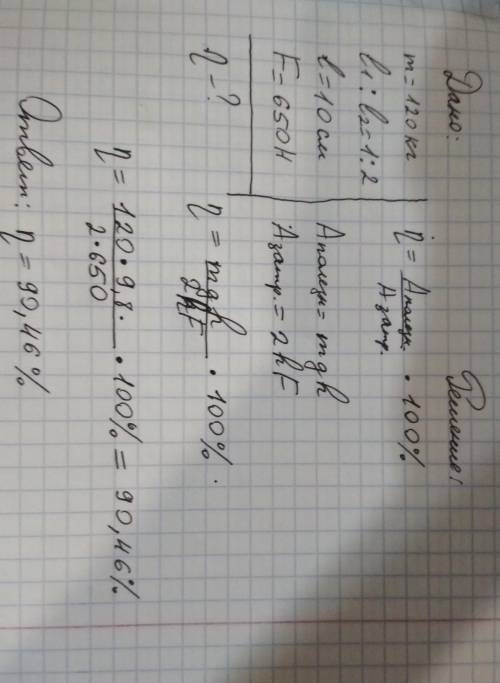 Дано:
m = 120 кг
l₁ : l₂ = 1 : 2
l = 10 см
F = 650 Н
η - ?
Решение:
η = Aполезн. / Aзатр. · 100%
Aполезн = mgh
Aзатр. = 2hF
η = mgh / 2hF · 100%.
η = 120 · 9,8 · / 2 · 650 · 100% = 90,46%
Ответ: η = 90,46%